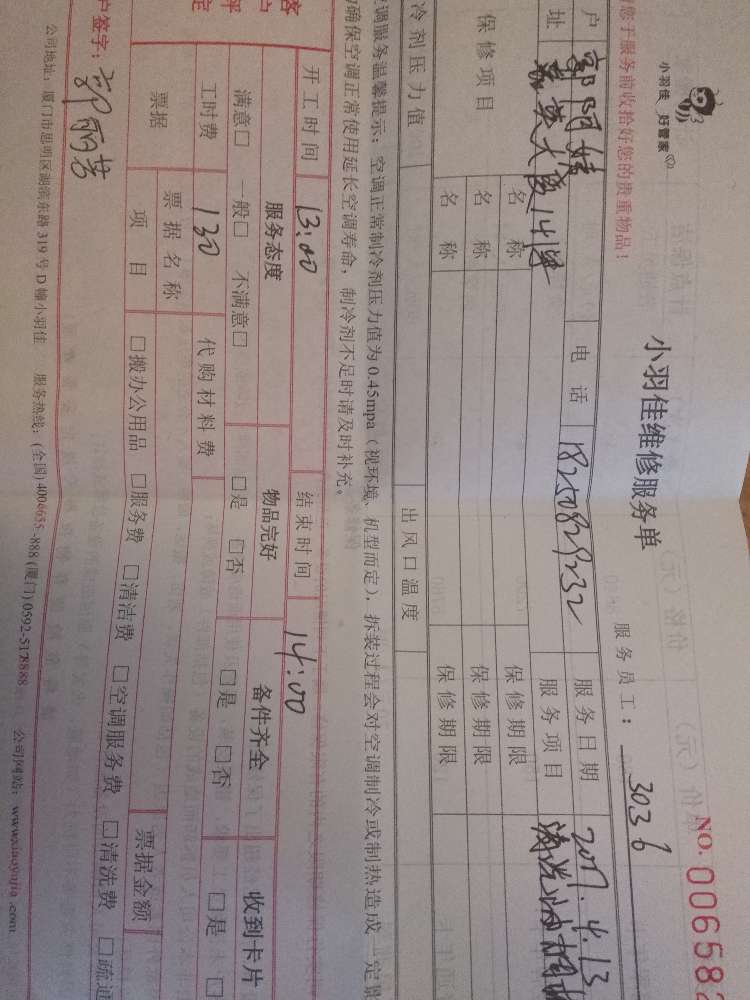 小羽佳 好管家
NO. 006583
小羽佳维修服务单
服务员工: 3036
您于服务前收拾好您的贵重物品!
户 电话 18250829232 服务日期 2017.4.13
址 大厦 服务项目 清洗
保修项目 名称 保修期限
名称 保修期限
名称 保修期限
冷剂压力值 出风口温度
调服务温馨提示:空调正常制冷剂压力值为0.45mpa(视环境、机型而定),拆装过程会对空调制冷或制热造成一定
确保空调正常使用延长空调寿命,制冷剂不足时请及时补充。
开工时间 13:00 结束时间 14:00
客 户 评 定
服务态度 物品完好 备件齐全 收到卡片
满意□ 一般□ 不满意□ □是 □否 □是 □否 □是 □
工时费 130 代购材料费
票据 票据名称 票据金额
项目 □搬办公用品 □服务费 □清洁费 □空调服务费 □清洗费 □疏通
户签字:
公司地址:厦门市思明区湖滨东路319号D幢小羽佳 服务热线:(全国)4006655-888 (厦门)0592-5178888 公司网站:www.xiaoyujia.com